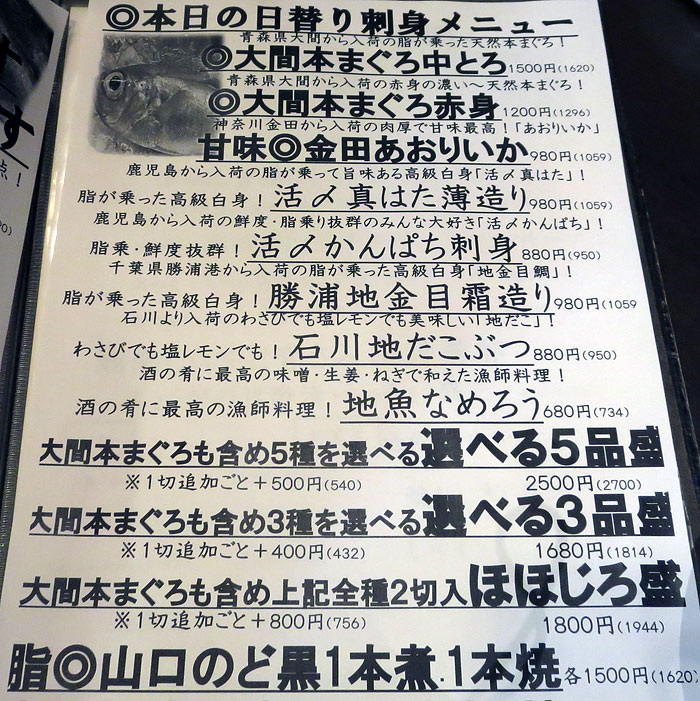 ◎本日の日替り刺身メニュー
青森県大間から入荷の脂が乗った天然本まぐろ！
◎大間本まぐろ中とろ1500円(1620)
青森県大間から入荷の赤身の濃い〜天然本まぐろ！
◎大間本まぐろ赤身1200円(1296)
神奈川金田から入荷の肉厚で甘味最高！「あおりいか」
甘味◎金田あおりいか980円(1059)
鹿児島から入荷の脂が乗って旨味ある高級白身「活〆真はた」！
脂が乗った高級白身！活〆真はた薄造り980円(1059)
鹿児島から入荷の鮮度・脂乗り抜群のみんな大好き「活〆かんぱち」！
脂乗・鮮度抜群！活〆かんぱち刺身880円(950)
千葉県勝浦港から入荷の脂が乗った高級白身「地金目鯛」！
脂が乗った高級白身！勝浦地金目霜造り980円(1059
石川より入荷のわさびでも塩レモンでも美味しい「地だこ」！
わさびでも塩レモンでも！石川地だこぶつ880円(950)
酒の肴に最高の味噌・生姜・ねぎで和えた漁師料理！
酒の肴に最高の漁師料理！地魚なめろう680円(734)
大間本まぐろも含め5種を選べる選べる5品盛
※1切追加ごと＋500円(540) 2500円(2700)
大間本まぐろも含め3種を選べる選べる3品盛
※1切追加ごと＋400円(432) 1680円(1814)
大間本まぐろも含め上記全種2切入ほほじろ盛
※1切追加ごと＋800円(756) 1800円(1944)
脂◎山口のど黒1本煮.1本焼各1500円(1620)
す
点！
0)